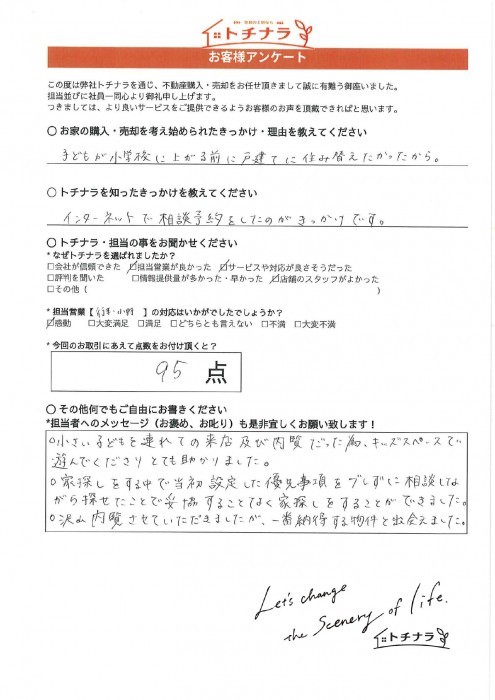 トチナラ
お客様アンケート
この度は弊社トチナラを通じ、不動産購入・売却をお任せ頂きまして誠に有難う御座いました。
担当並びに社員一同心より御礼申し上げます。
つきましては、より良いサービスをご提供できるようお客様のお声を頂戴できればと思います。
〇 お家の購入・売却を考え始められたきっかけ・理由を教えてください
子どもが小学校に上がる前に戸建てに住み替えたかったから。
〇 トチナラを知ったきっかけを教えてください
インターネットで相談予約をしたのがきっかけです。
〇 トチナラ・担当の事をお聞かせください
* なぜトチナラを選ばれましたか?
□会社が信頼できた ☑担当営業が良かった ☑サービスや対応が良さそうだった
□評判を聞いた □情報提供量が多かった・早かった ☑店舗のスタッフがよかった
□その他 ( )
* 担当営業【 小野 】の対応はいかがでしたでしょうか?
☑感動 □大変満足 □満足 □どちらとも言えない □不満 □大変不満
* 今回のお取引にあえて点数をお付け頂くと?
95 点
〇 その他何でもご自由にお書きください
*担当者へのメッセージ(お褒め、お叱り)も是非宜しくお願い致します!
○小さい子どもを連れての来店及び内覧だった為、キッズスペースで
遊んでくださりとても助かりました。
○家探しをする中で当初設定した優先事項をブレずに相談しな
がら探せたことで妥協することなく家探しをすることができました。
○沢山内覧させていただきましたが、一番納得する物件と出会えました。
Let's change
the Scenery of life.
トチナラ